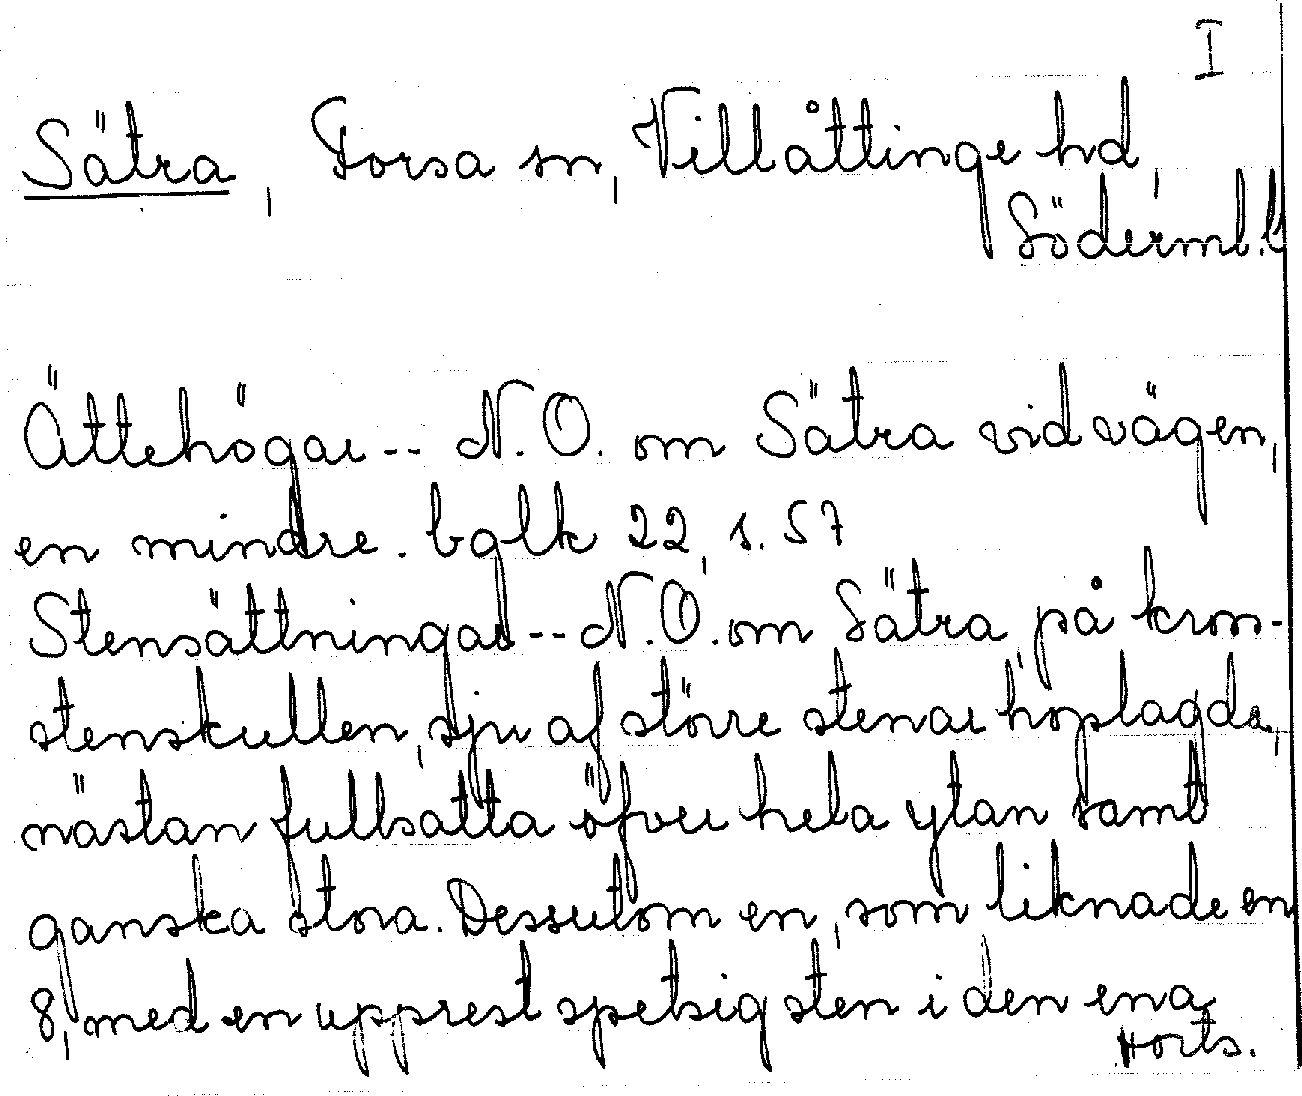 I
Sätra, Forsa sn, Villåttinge hd,
Söderml. l
Ättehögar -- N.O. om Sätra vid vägen,
en mindre. bglk 22, s. 57
Stensättningar -- N.O. om Sätra, på kros-
stenskullen, sju af större stenar hoplagda,
nästan fullsatta öfver hela ytan samt
ganska stora. Dessutom en, som liknade en
8, med en upprest spetsig sten i den ena
Forts.